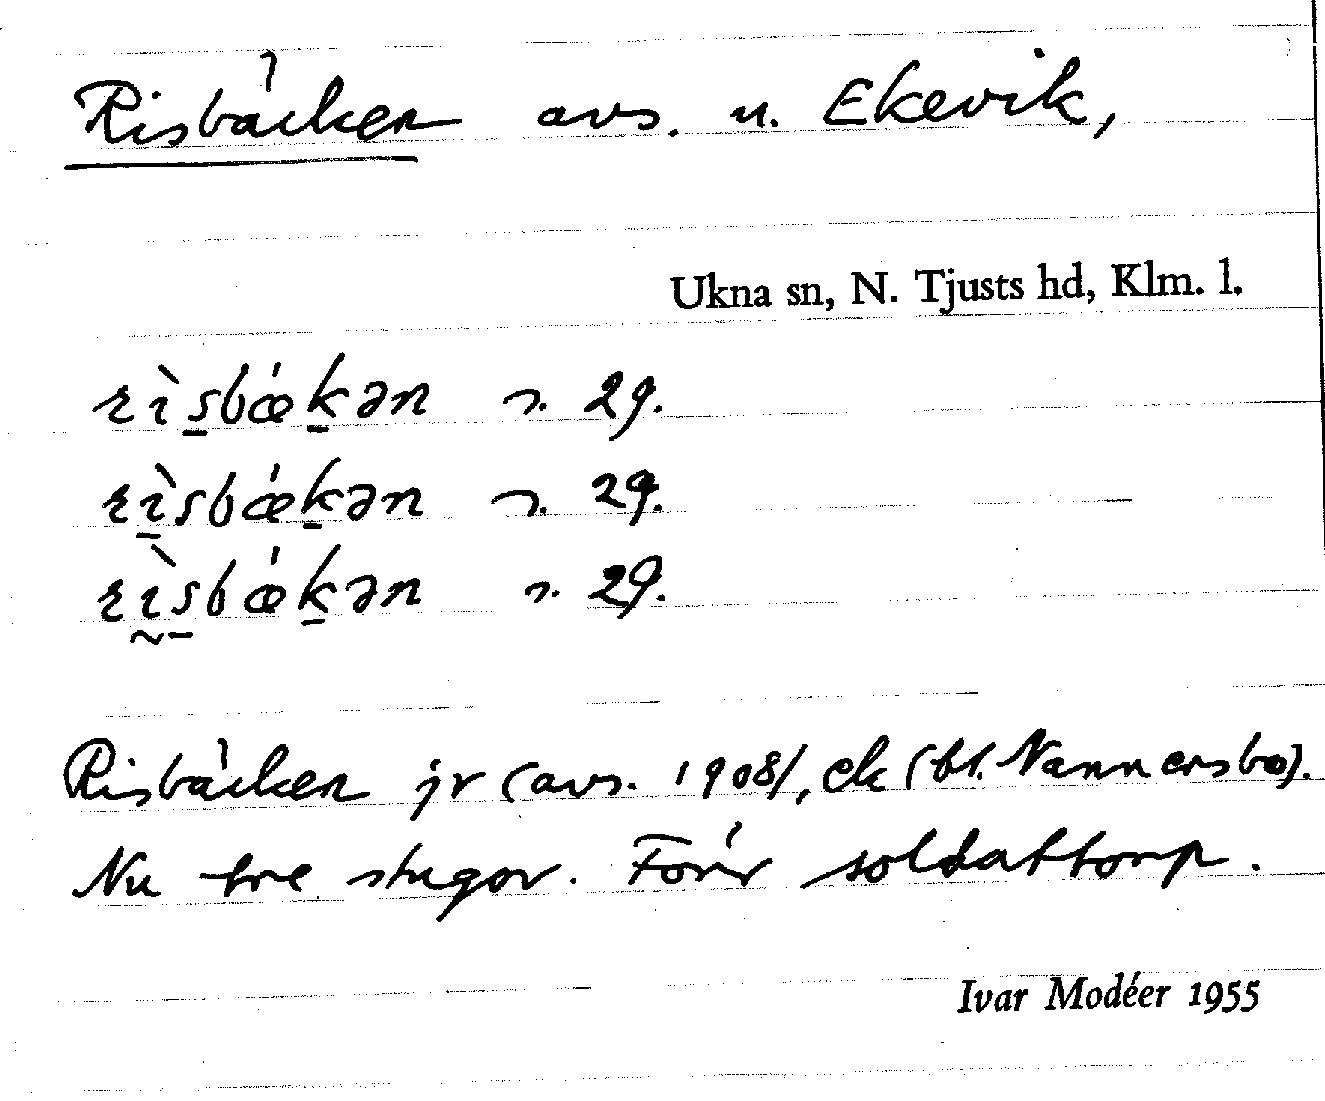 Risbäcken avs. u. Ekevik,
Ukna sn, N. Tjusts hd, Klm. l.
rìs̠bǽk̠ən 29.
rì̠sbǽk̠ən 29.
rḭ̀s̠bǽk̠ən 29.
Risbäcken jr (avs. 1908), ek (bl. Nannersbo).
Nu tre stugor. Förr soldattorp.
Ivar Modéer 1955